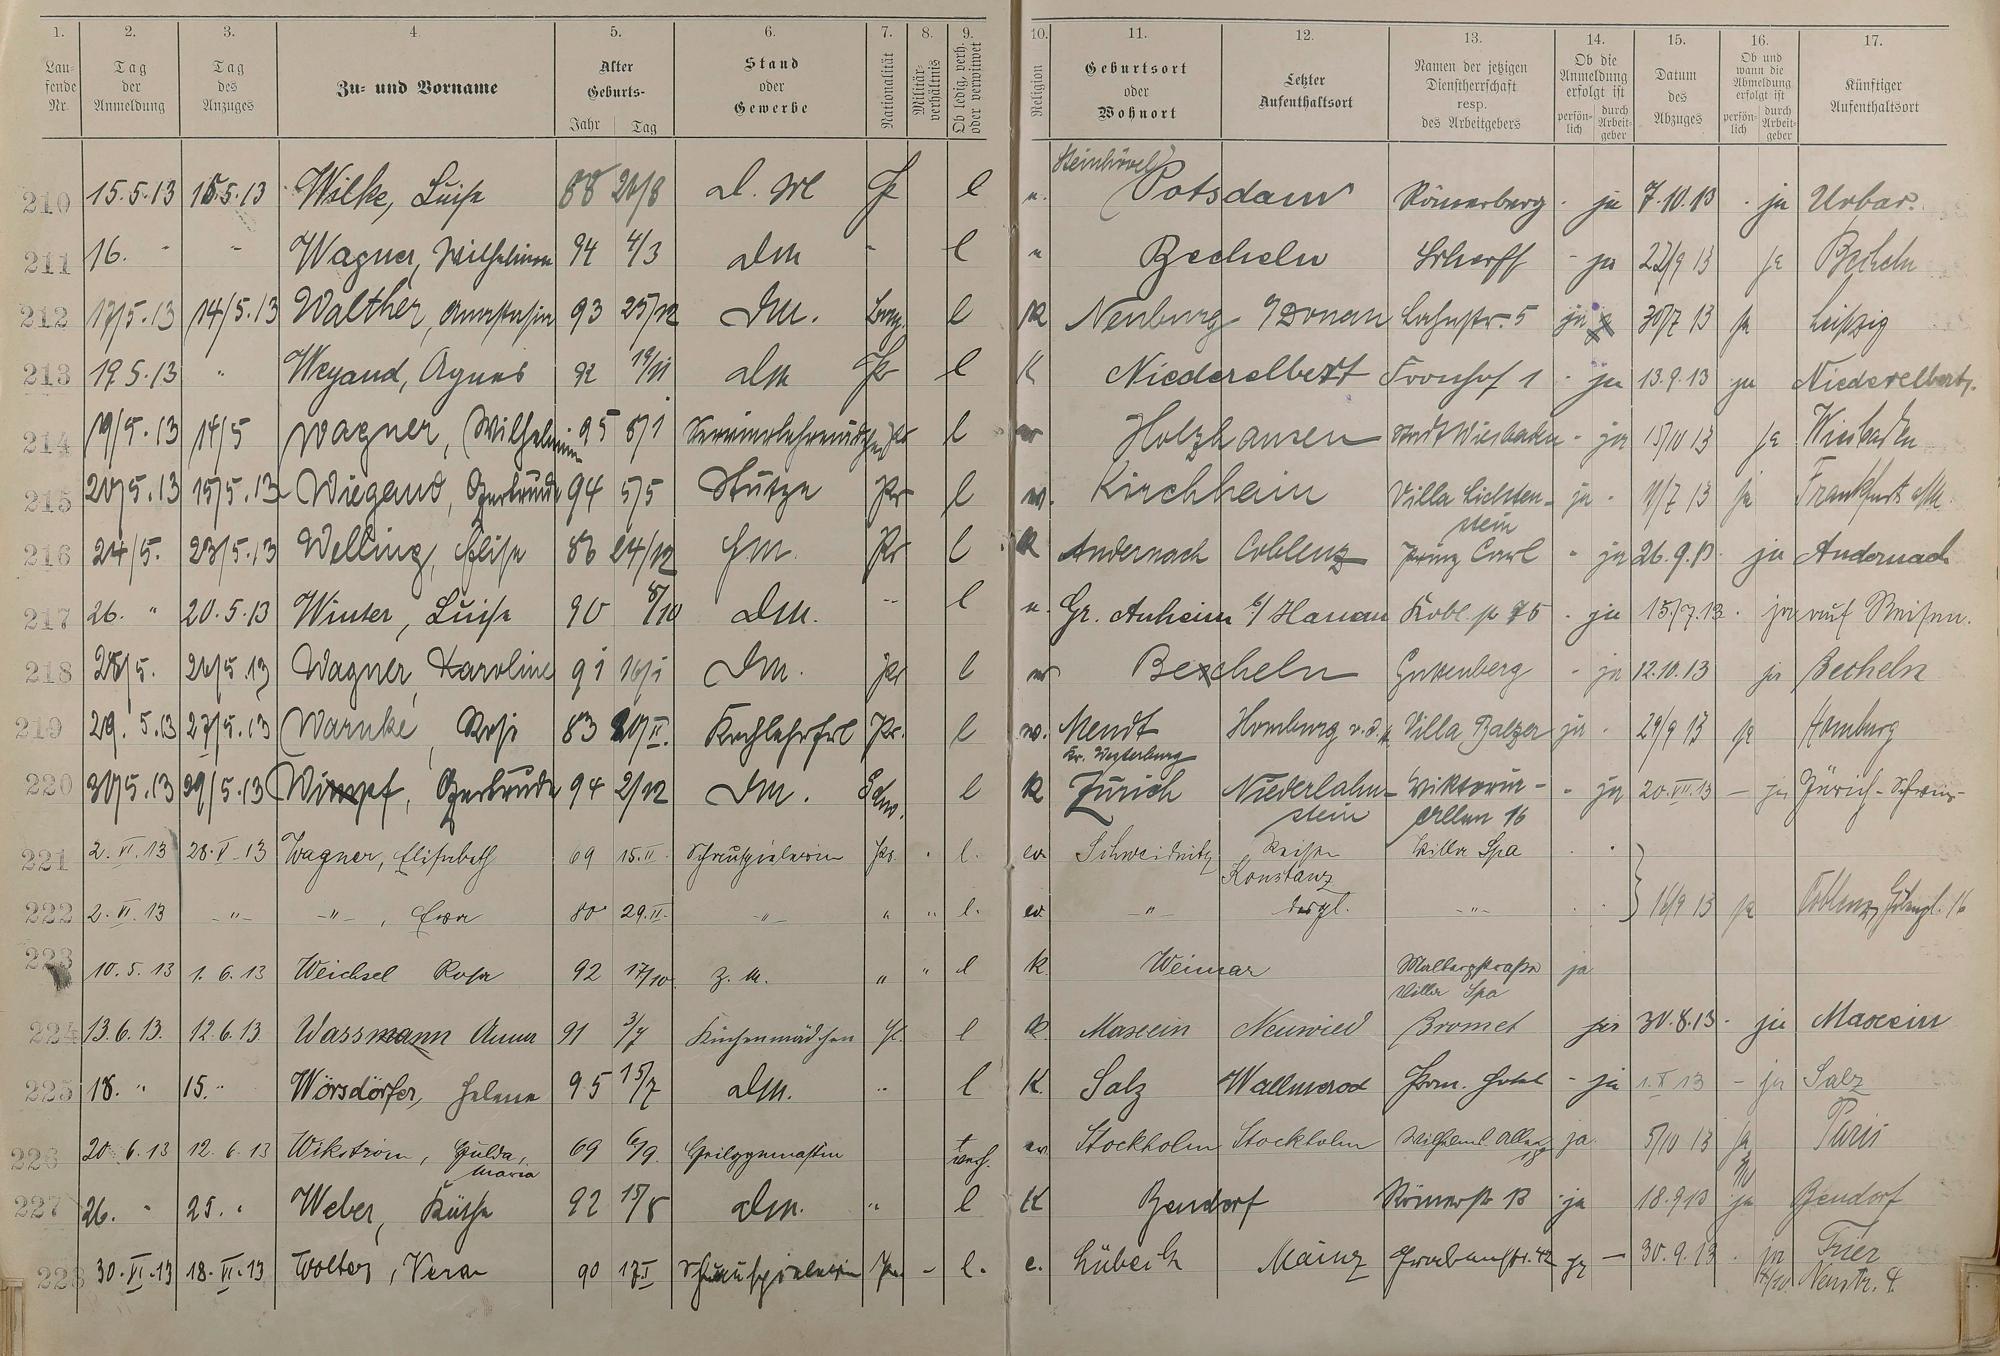 1. 2. 3. 4. 5. 6. 7. 8. 9. 10. 11. 12. 13. 14. 15. 16. 17.
Lau-fende Nr. Tag der Anmeldung Tag des Anzuges Zu- und Vorname Alter Geburts- Jahr Tag Stand oder Gewerbe Nationalität Militär-verhältnis Ob ledig, verh. oder verwitwet Religion Geburtsort oder Wohnort Letzter Aufenthaltsort Namen der jetzigen Dienstherrschaft resp. des Arbeitgebers Ob die Anmeldung erfolgt ist persön-lich durch Arbeit-geber Datum des Abzuges Ob und wann die Abmeldung erfolgt ist persön-lich durch Arbeit-geber Künftiger Aufenthaltsort
210 15.5.13 15.5.13 Wilke, Luise 88 D. M Pr l Potsdam Römerberg ja 7.10.13 ja Urbar.
211 16. " " Wagner, Wilhelmine 94 4/3 DM " l Becheln ja 22/9 13 ja Becheln
212 17/5.13 14/5.13 Walther, Anastasia 93 25/12 DM. l K Neuburg a/Donau Lahnstr. 5 ja 30/7 13 ja Leipzig
213 19 5.13 " Weyand, Agnes 92 19/11 DM Pr l K Niederelbert Fronhof 1 ja 13.9.13 ja Niederelbert.
214 19/5.13 14/5 Wagner, Wilhelmine 95 8/1 l Holzhausen Stadt Wiesbaden - ja 15/10 13 ja Wiesbaden
215 20/5.13 15/5.13 Wiegand, Gertrude 94 5/5 Stütze Pr l Kirchhain Villa Lichten-stein ja 13 ja Frankfurt a/M.
216 24/5. 23/5.13 Welling, Elise 24/12 Pr l K Andernach Coblenz Prinz Carl " ja 26.9.13 ja Andernach
217 26. " 20.5.13 Winter, Luise 90 8/10 DM. l Gr. Auheim b/Hanau ja 15/7.13 ja auf Reisen.
218 28/5. 26/5.13 Wagner, Karoline 91 16/1 DM. Pr l Becheln Guttenberg - ja 12.10.13 ja Becheln
219 29. 5.13 27/5.13 Warnke, Rosi 83 Kochlehrfrl Pr. l Mendt Kr. Westerburg Homburg v.d.H Villa Balzer ja 29/9 13 ja Homburg
220 30/5.13 29/5.13 Wimpf, Gertrude 94 2/12 DM. Schw. l K Zürich Niederlahn-stein Viktoria-allee 16 - ja 20.VII.13 - ja Zürich-Schweiz
221 2.VI.13 28.V.13 Wagner, Elisabeth 69 15.II. Schauspielerin Pr. l. ev. Schweidnitz Reisen Konstanz Villa Spa
222 2.VI.13 -"- -"-, 80 29.II. -"- " " l. ev. -"- desgl. -"- 16/9 13 ja Coblenz
223 10.5.13 1.6.13 Weichsel Rosa 92 17/10 Z. M. " " l K. Weimar Malbergstrasse Villa Spa ja
224 13.6.13. 12.6.13 Wassmann Anna 91 3/7 Küchenmädchen l K Masein Neuwied Bromet ja 30.8.13. ja Masein
225 18. " 15. " Wörsdörfer, Helene 95 15/7 DM. " l K. Salz Wallmerod - ja 1.X 13 - ja Salz
226 20 6.13 12.6.13 Wikström, Hulda, Maria 69 6/9 Heilgymnastin ev. Stockholm Stockholm Wilhelms Allee ja 5/10 13 ja Paris
227 26. " 25. " Weber, Käthe 92 15/8 DM. " l K Bendorf Römerstr 13 ja 18.9 13 ja Bendorf
228 30.VI.13 18.VI.13 Wolters, Vera 90 17 I Schauspielerin Pr. - l. e. Lübeck Mainz Grabenstr. 42 ja - 30.9.13 ja Trier Neustr. 4.